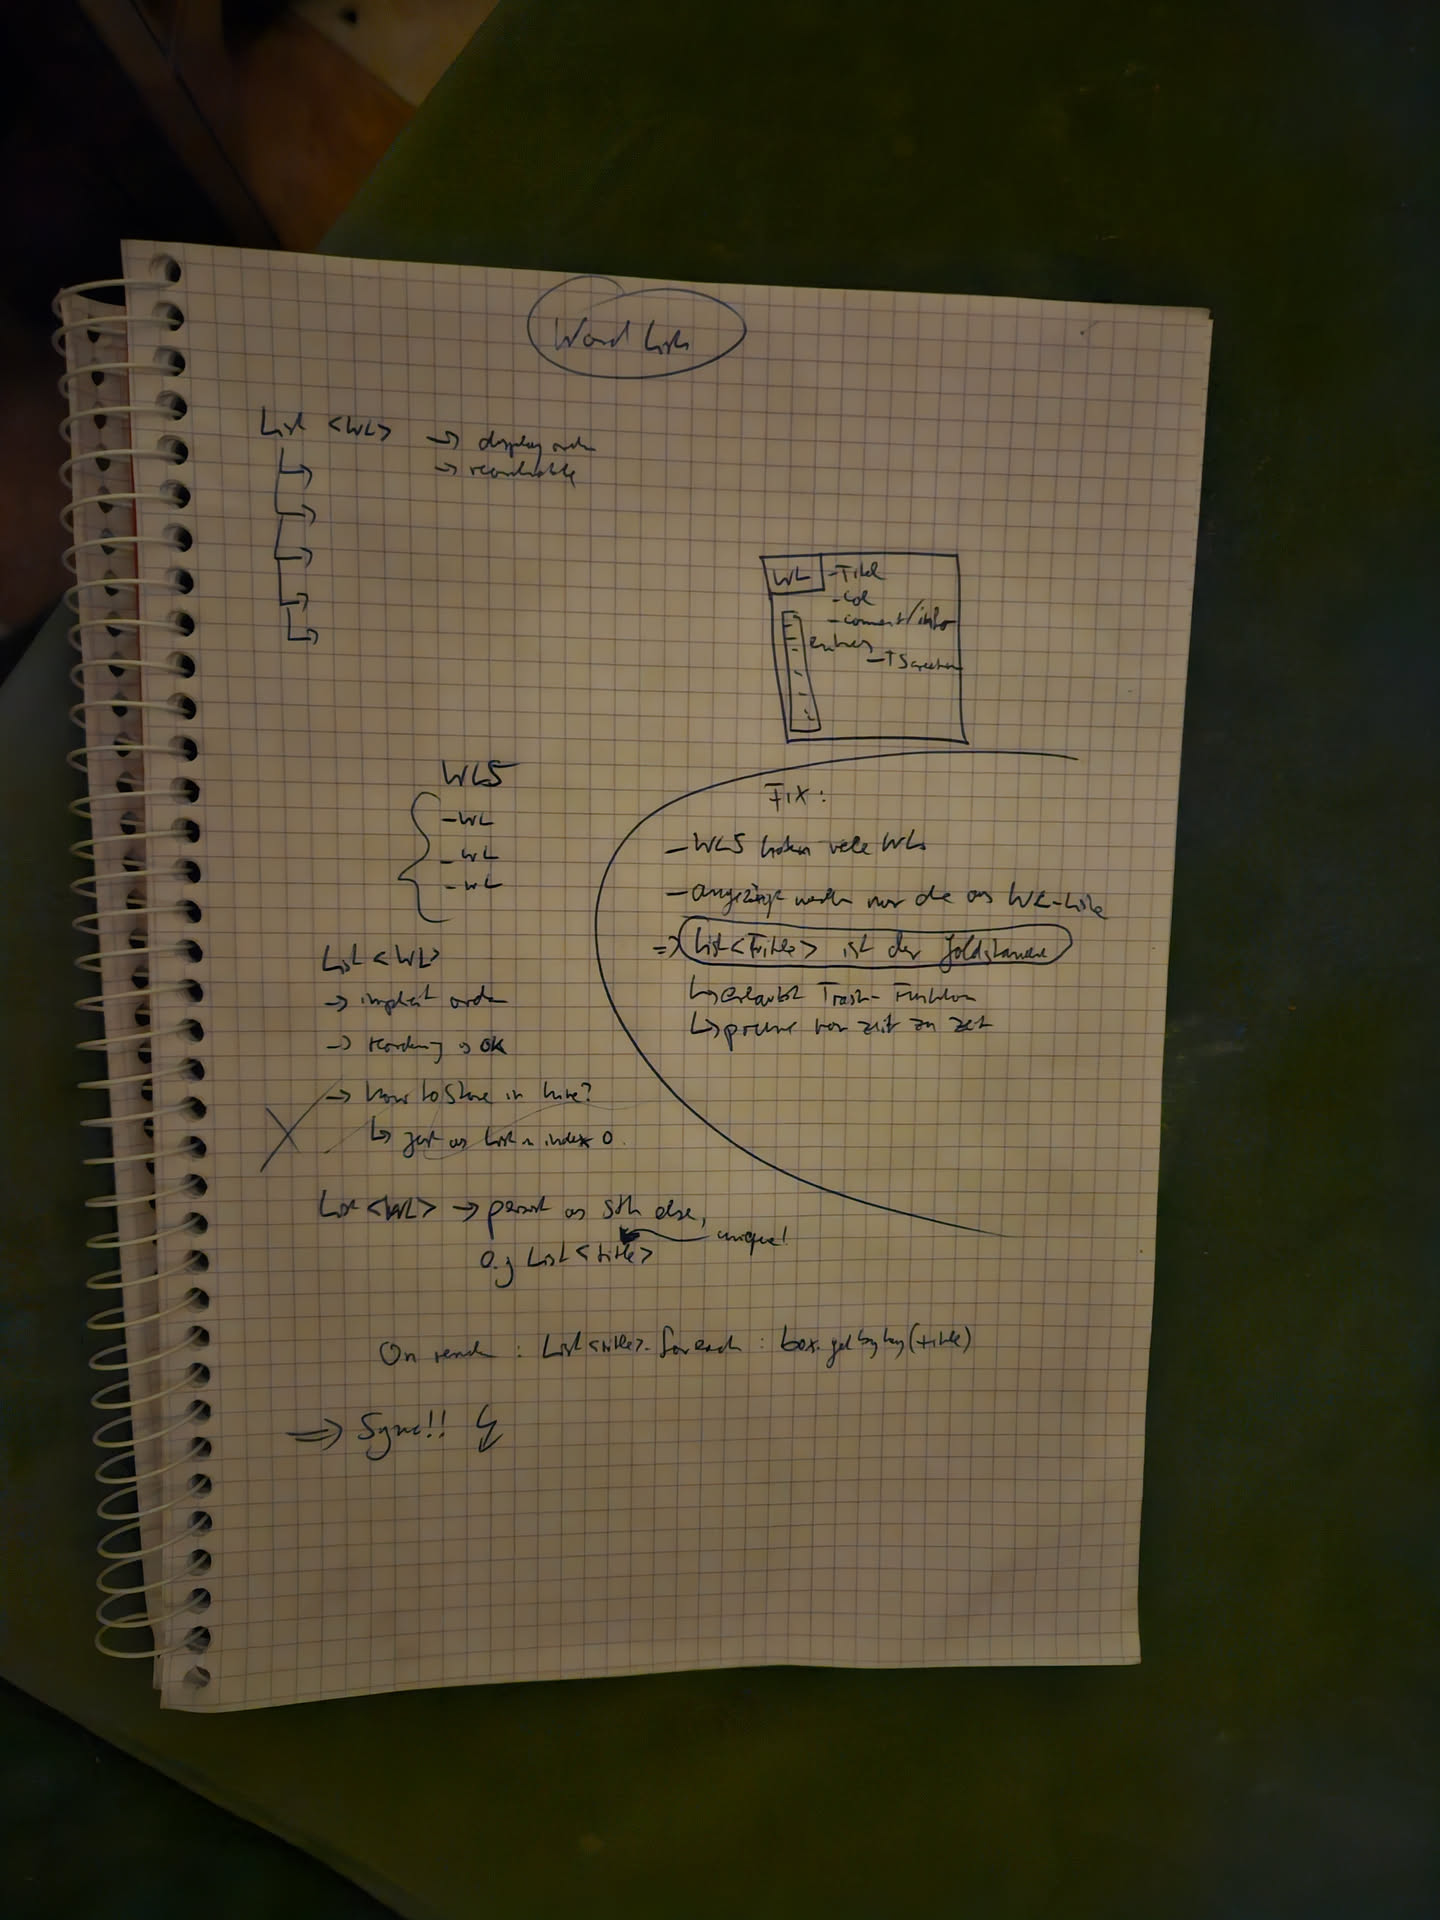 Word Lists
List <WL> → display order
→ reorderable
WL
- Titel
- Col
- comment/info
entries
- TS creation
WLS
- WL
- WL
- WL
List <WL>
→ implicit order
→ reordering is OK
→ how to store in hive?
↳ just as List in index 0.
List <WL> → persist as sth else,
unique!
e.g List <title>
On render : List<title>.foreach : box.getbykey(title)
⇒ Sync!!
Fix:
- WLS haben viele WLs
- angezeigt werden nur die as WL-Liste
⇒ List<Title> ist der Goldstandard
↳ erlaubt Trash-Funktion
↳ prune von zeit zu zeit